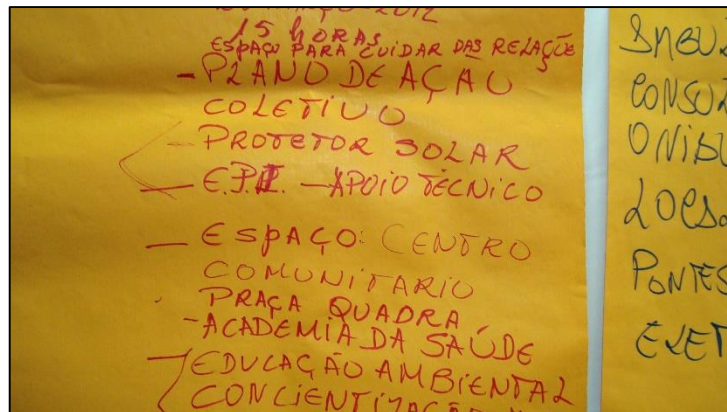 2012
15 HORAS
ESPAÇO PARA CUIDAR DAS RELAÇÕE
- PLANO DE AÇÃO
COLETIVO
- PROTETOR SOLAR
- E.P.I. - APOIO TÉCNICO
- ESPAÇO: CENTRO
COMUNITARIO
PRAÇA QUADRA
- ACADEMIA DA SAÚDE
EDUCAÇÃO AMBIENTAL
CONCIENTIZAÇÃO
ONIBU
PONTES